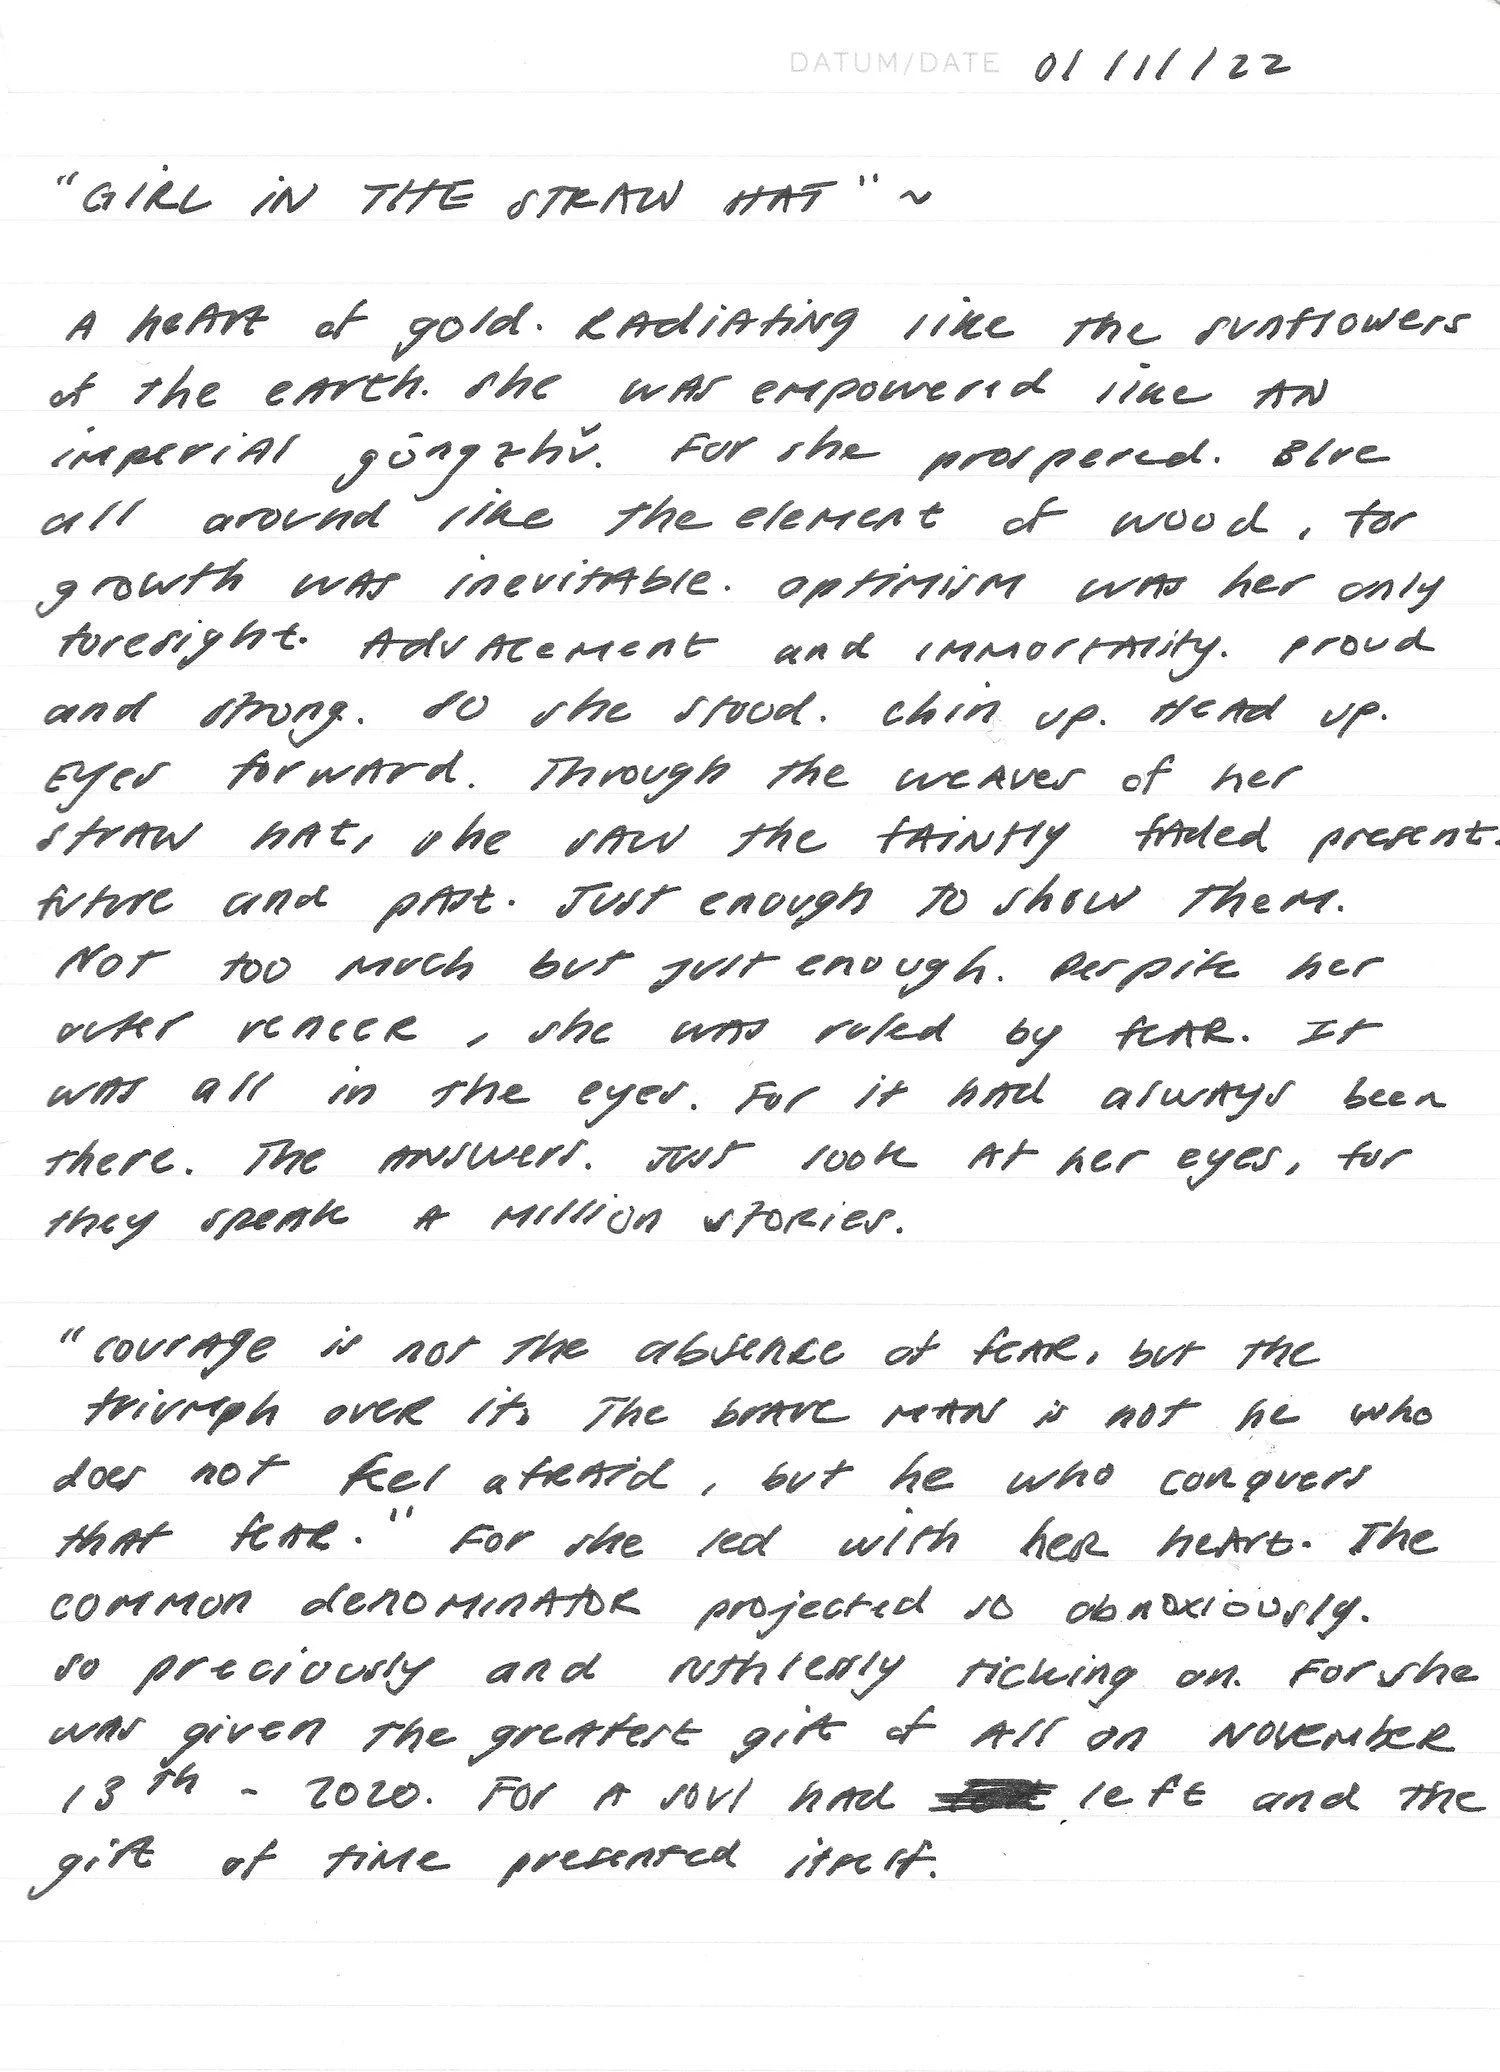 DATUM/DATE 01/11/22
"GIRL IN THE STRAW HAT" ~
A heart of gold. Radiating like the sunflowers
of the earth. She was empowered like an
imperial gōngzhǔ. For she prospered. Blue
all around like the element of wood, for
growth was inevitable. Optimism was her only
foresight. Advacement and immortality. Proud
and strong. So she stood. Chin up. Head up.
Eyes forward. Through the weaves of her
straw hat, she saw the faintly faded present.
future and past. Just enough to show them.
Not too much but just enough. Despite her
outer veneer, she was ruled by fear. It
was all in the eyes. For it had always been
there. The answers. Just look at her eyes, for
they speak a million stories.
"courage is not the absence of fear, but the
triumph over it. The brave man is not he who
does not feel afraid, but he who conquers
that fear." For she led with her heart. The
common denominator projected so obnoxiously.
so preciously and ruthlessly ticking on. For she
was given the greatest gift of all on November
13th - 2020. For a soul had left and the
gift of time presented itself.